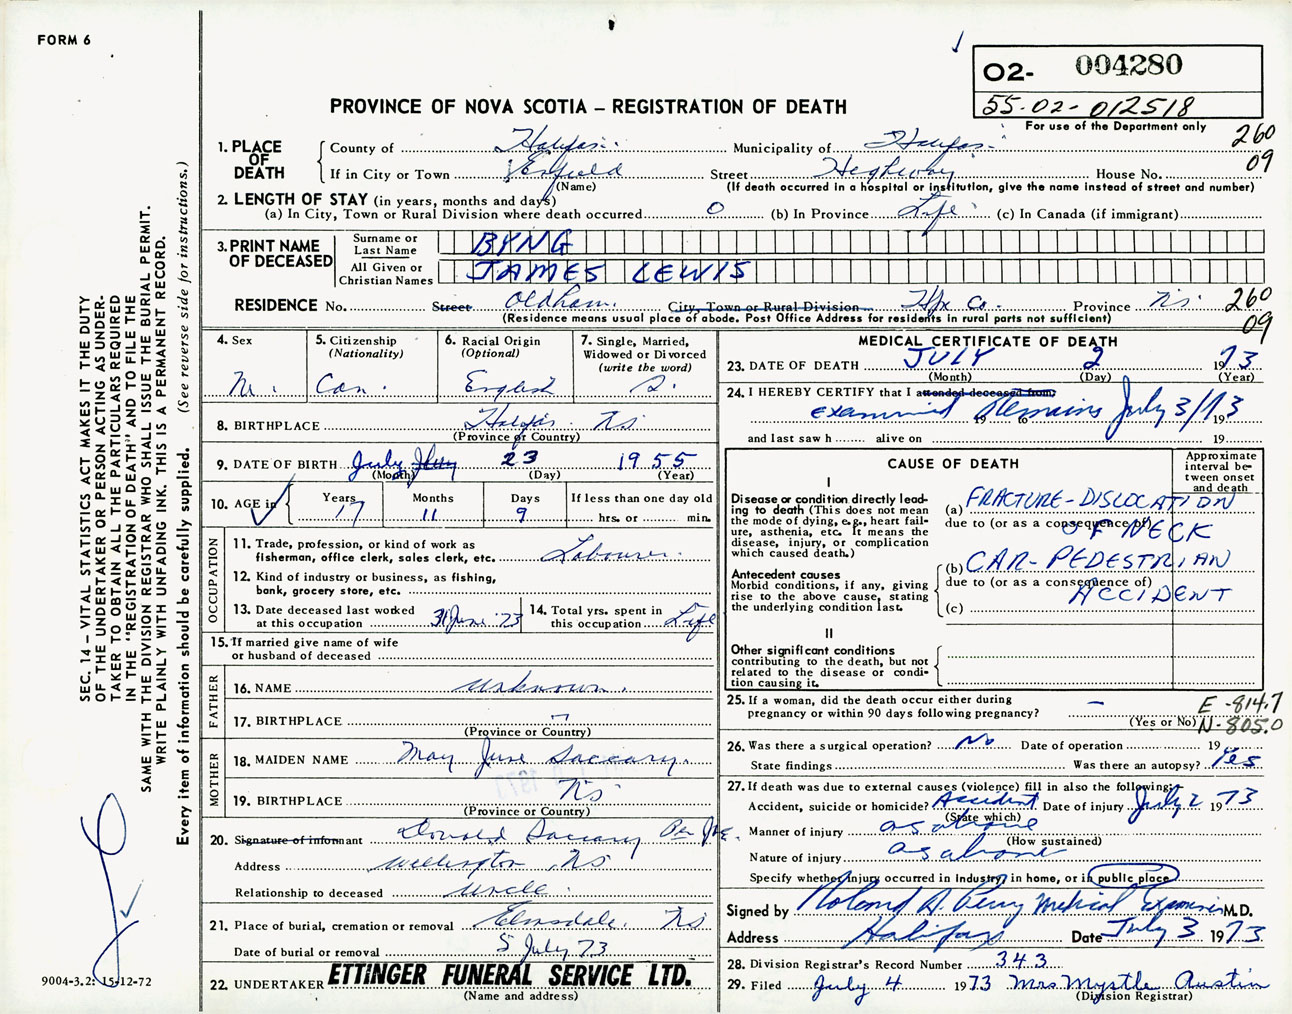 FORM 6
O2- 004280
55-02-012518
For use of the Department only
PROVINCE OF NOVA SCOTIA – REGISTRATION OF DEATH
260
09
1. PLACE OF DEATH
County of Halifax Municipality of Halifax
If in City or Town Enfield Street Highway House No.
(Name) (If death occurred in a hospital or institution, give the name instead of street and number)
2. LENGTH OF STAY (in years, months and days)
(a) In City, Town or Rural Division where death occurred 0 (b) In Province Life (c) In Canada (if immigrant)
3. PRINT NAME OF DECEASED
Surname or Last Name BYNG
All Given or Christian Names JAMES LEWIS
RESIDENCE No. Street Oldham City, Town or Rural Division Hfx Co. Province NS
260
09
(Residence means usual place of abode. Post Office Address for residents in rural parts not sufficient)
4. Sex M.
5. Citizenship (Nationality) Can.
6. Racial Origin (Optional) English
7. Single, Married, Widowed or Divorced (write the word) S.
8. BIRTHPLACE Halifax NS
(Province or Country)
9. DATE OF BIRTH July 23 1955
(Month) (Day) (Year)
10. AGE in Years 17 Months 11 Days 9 If less than one day old hrs. or min.
OCCUPATION
11. Trade, profession, or kind of work as fisherman, office clerk, sales clerk, etc. Labourer.
12. Kind of industry or business, as fishing, bank, grocery store, etc.
13. Date deceased last worked at this occupation 31 June 73
14. Total yrs. spent in this occupation Life
15. If married give name of wife or husband of deceased
FATHER
16. NAME unknown.
17. BIRTHPLACE –
(Province or Country)
MOTHER
18. MAIDEN NAME May June Saccary.
19. BIRTHPLACE NS
(Province or Country)
20. Signature of informant Donald Saccary Per
Address Wellington NS
Relationship to deceased Uncle.
21. Place of burial, cremation or removal Elmsdale. NS
Date of burial or removal 5 July 73
22. UNDERTAKER ETTINGER FUNERAL SERVICE LTD.
(Name and address)
MEDICAL CERTIFICATE OF DEATH
23. DATE OF DEATH JULY 2 1973
(Month) (Day) (Year)
24. I HEREBY CERTIFY that I attended deceased from
examined Remains July 3/73
19 to 19
and last saw h alive on 19
CAUSE OF DEATH
Approximate interval between onset and death
I
Disease or condition directly leading to death (This does not mean the mode of dying, e.g., heart failure, asthenia, etc. It means the disease, injury, or complication which caused death.)
(a) FRACTURE-DISLOCATION
due to (or as a consequence of) OF NECK
Antecedent causes
Morbid conditions, if any, giving rise to the above cause, stating the underlying condition last.
(b) CAR-PEDESTRIAN
due to (or as a consequence of) ACCIDENT
(c)
II
Other significant conditions contributing to the death, but not related to the disease or condition causing it.
25. If a woman, did the death occur either during pregnancy or within 90 days following pregnancy? –
(Yes or No)
E-814.7
N-805.0
26. Was there a surgical operation? No Date of operation 19
State findings Was there an autopsy? Yes
27. If death was due to external causes (violence) fill in also the following:
Accident, suicide or homicide? Accident Date of injury July 2 1973
(State which)
Manner of injury as above
(How sustained)
Nature of injury as above
Specify whether injury occurred in industry, in home, or in public place
Signed by Roland A. Perry Medical Examiner M.D.
Address Halifax Date July 3 1973
28. Division Registrar's Record Number 343
29. Filed July 4 1973 Mrs Myrtle Austin
(Division Registrar)
SEC. 14 – VITAL STATISTICS ACT MAKES IT THE DUTY
OF THE UNDERTAKER OR PERSON ACTING AS UNDERTAKER TO OBTAIN ALL THE PARTICULARS REQUIRED
IN THE "REGISTRATION OF DEATH" AND TO FILE THE
SAME WITH THE DIVISION REGISTRAR WHO SHALL ISSUE THE BURIAL PERMIT.
WRITE PLAINLY WITH UNFADING INK. THIS IS A PERMANENT RECORD.
Every item of information should be carefully supplied. (See reverse side for instructions.)
9004-3.2: 15-12-72